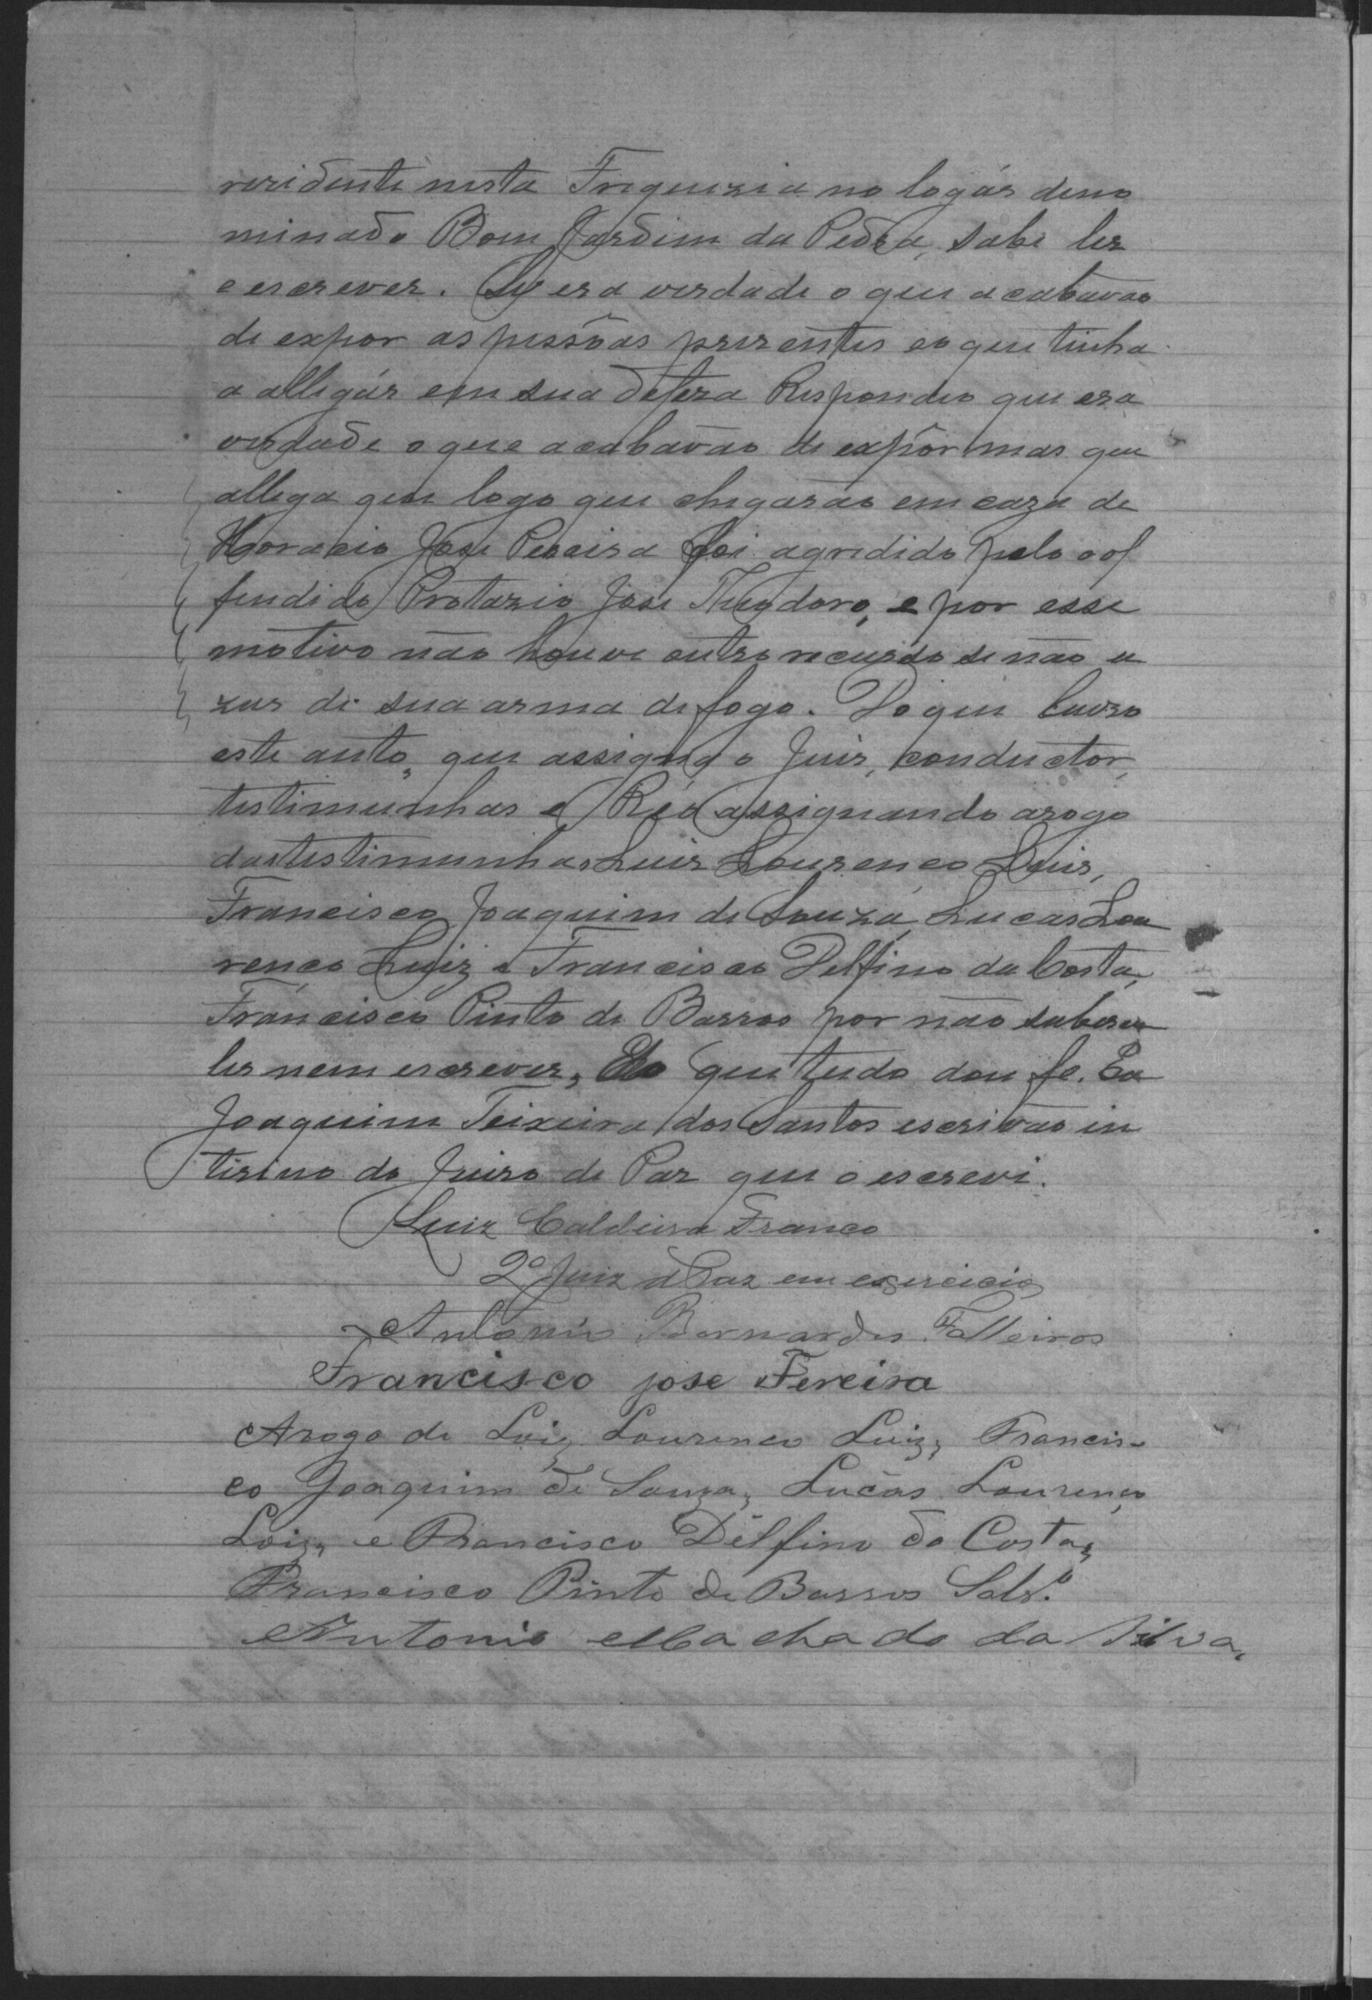 rezidente nesta Freguezia no logár deno
minado Bom Jardim da Pedra, sabe ler
e escrever. Se era verdade o que acabavão
de expor as pessôas prezentes e o que tinha
a allegár em sua defeza Respondeo que era
verdade o que acabavão de expôr mas que
allega que logo que chegarão em caza de
Horacio José Pereira foi agredido pelo of
fendido Protazio José Theodoro, e por esse
motivo não houve outro recurso se não u
zar de sua arma de fogo. Do que lavro
este auto, que assigna o Juiz, conductor,
testimunhas e Réo assignando arogo
das testimunhas Luiz Lourenço Luiz,
Francisco Joaquim de Souza, Lucas Lou
renço Luiz e Francisco Delfino da Costa,
Francisco Pinto de Barros por não saberem
ler nem escrever, do que tudo dou fé. Eu
Joaquim Teixeira dos Santos escrivão in
tirino do Juizo de Paz que o escrevi.
Luiz Caldeira Franco
2º Juiz de Paz em exercicio
Antonio Bernardes Falleiros
Francisco jose Fereira
Arogo de Loiz Lourenco Luiz, Francis-
co Joaquim de Souza, Lucas Lourenço
Loiz, e Francisco Délfino da Costa,
Francisco Pinto de Barros
Antonio Machado da Silva,